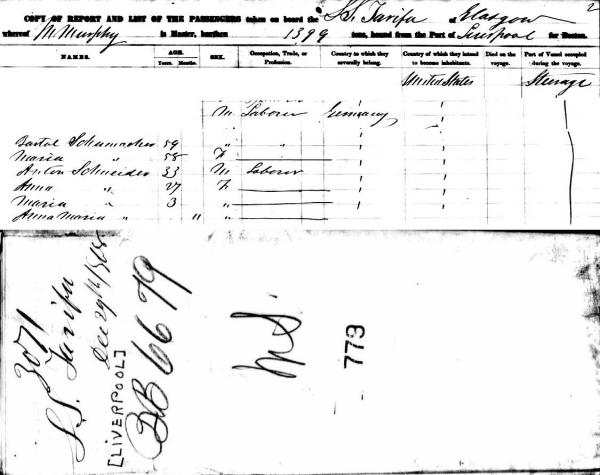 2
COPY OF REPORT AND LIST OF THE PASSENGERS taken on board the S.S. Tarifa of Glasgow
whereof M. Murphy is Master, burthen 1399 tons, bound from the Port of Liverpool for Boston.
NAMES. AGE. Years. Months. SEX. Occupation, Trade, or Profession. Country to which they severally belong. Country of which they intend to become inhabitants. Died on the voyage. Part of Vessel occupied during the voyage.
United States Steerage
M Laborer Germany
Bartol Schumacher 59 " "
Maria " 58 F
Anton Schneider 33 M Laborer
Anna " 27 F
Maria " 3 "
Anna Maria " " "
3071
S.S. Tarifa
Dec 29th 1868
[LIVERPOOL]
BB 6679
MS.
773